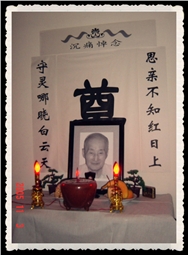 沉痛悼念
思亲不知红日上
守灵哪晓白云天
奠